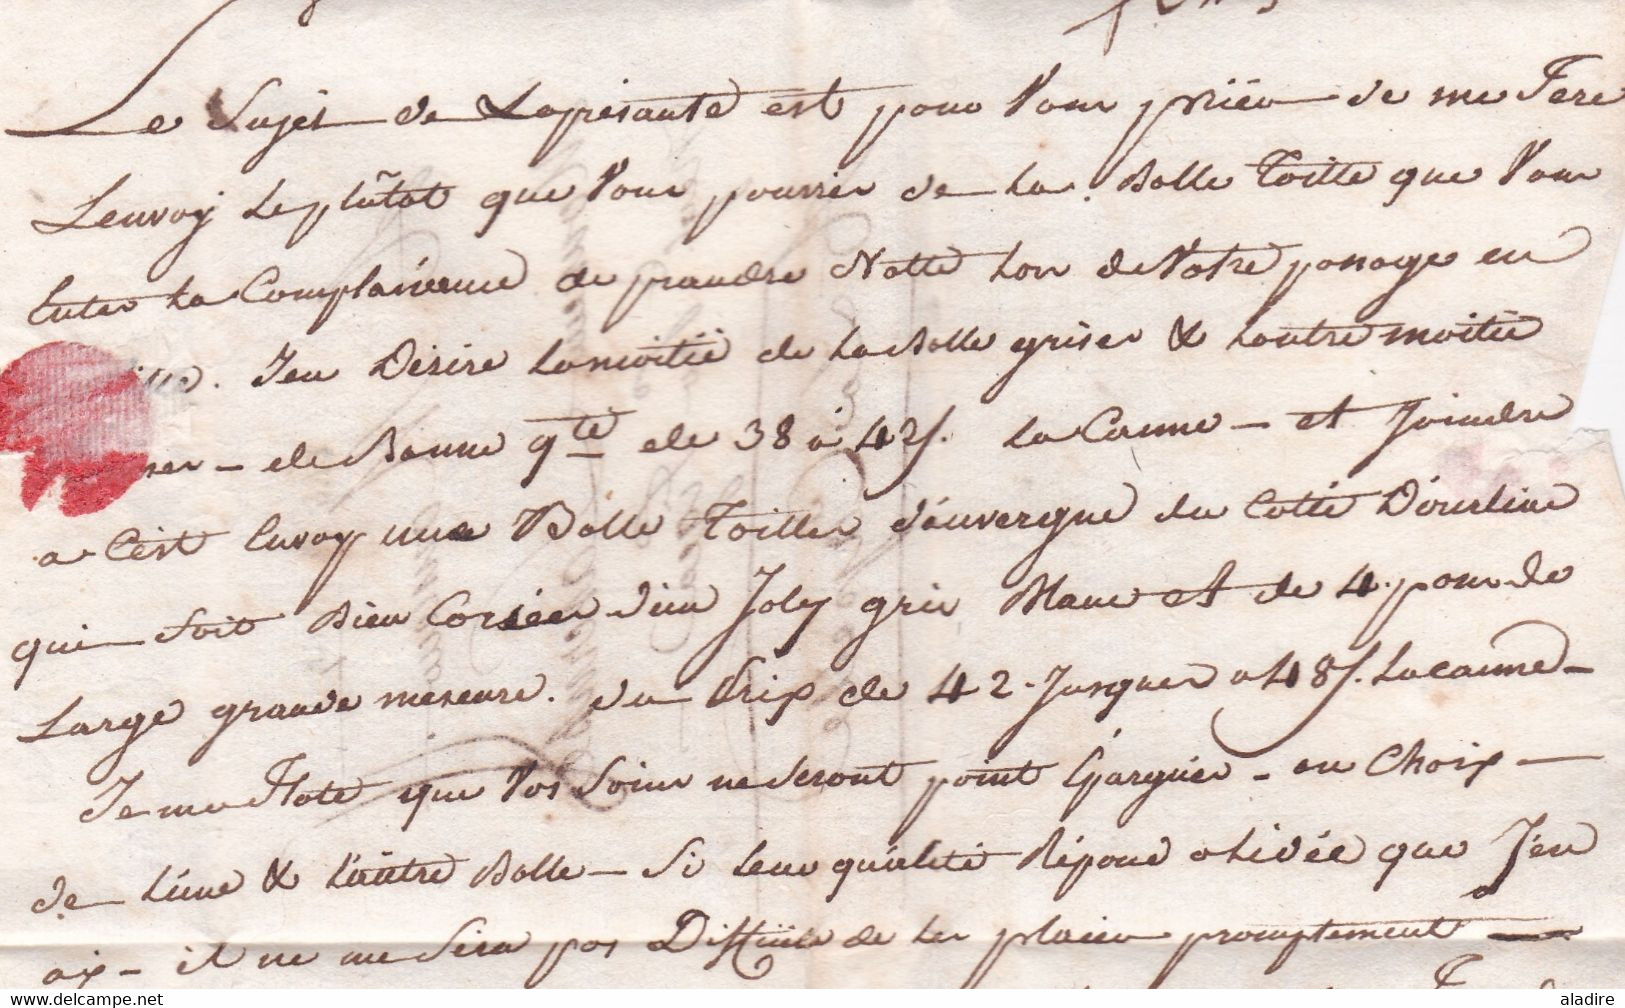 Le Sujet de Laprésante est pour Vous prier de me Fere
Lenvoy Leplûtot que Vous pourrier de La Balle Toille que Vous
Eutes La Complaisence de prandre Notte Lors de Votre passage en
ville. Jen Désire Lamoitié de La Balle griser & Lautre moitié
de Bonne qté de 38 à 42 s. La Canne - et Joindre
a Cest Envoy une Balle Toilles d'auvergne du Cotté D'ourliac
qui Soit Bien Corsées d'un Joly gris Blanc et de 4. pans de
Large grande meseure. du Prix de 42. Jusques a 48 s. La canne -
Je me flate que Vos Soins ne Seront point Épargnés - au Choix -
de L'une & L'autre Balle - Si Leur qualité Répond a Lidée que J'en
aix - il ne me Sera pas Difficile de Les placer promptement
www.delcampe.net
aladire